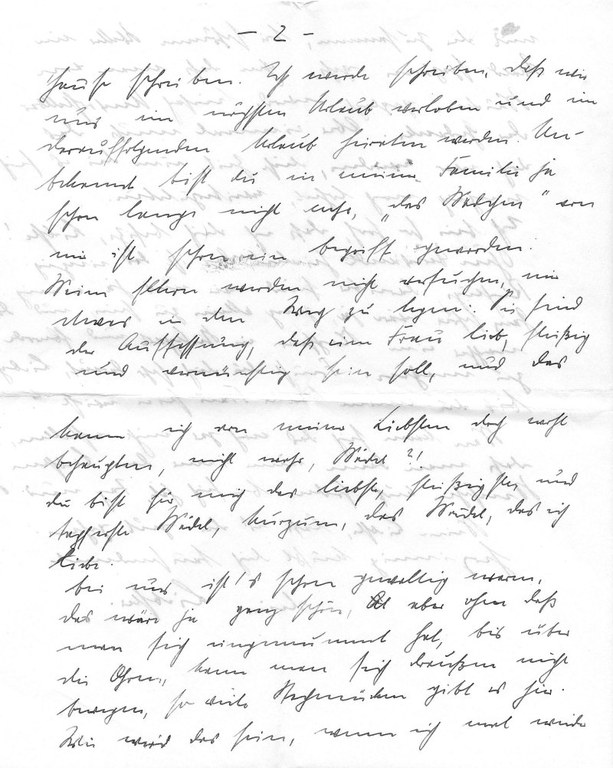 - 2 -
Hause schreiben. Ich werde schreiben, daß wir
uns im nächsten Urlaub verloben und im
darauffolgenden Urlaub heiraten werden. Un-
bekannt bist du in meiner Familie ja
schon lange nicht mehr, „das Mädchen" von
mir ist schon ein Begriff geworden.
Meine Eltern werden nicht versuchen, mir
etwas in den Weg zu legen. Sie sind
der Auffassung, daß eine Frau lieb, fleißig
und vernünftig sein soll, und das
kann ich von meiner Liebsten doch wohl
behaupten, nicht wahr, Mädel?!
Du bist für mich das liebste, fleißigste und
tapferste Mädel, kurzum, das Mädel, das ich
liebe.
Bei uns ist's schon gewaltig warm,
das wäre ja ganz schön, aber ohne daß
man sich eingemummt hat, bis über
die Ohren, kann man sich draußen nicht
bewegen, so viele Stechmücken gibt es hier.
Wie wird das sein, wenn ich mal wieder